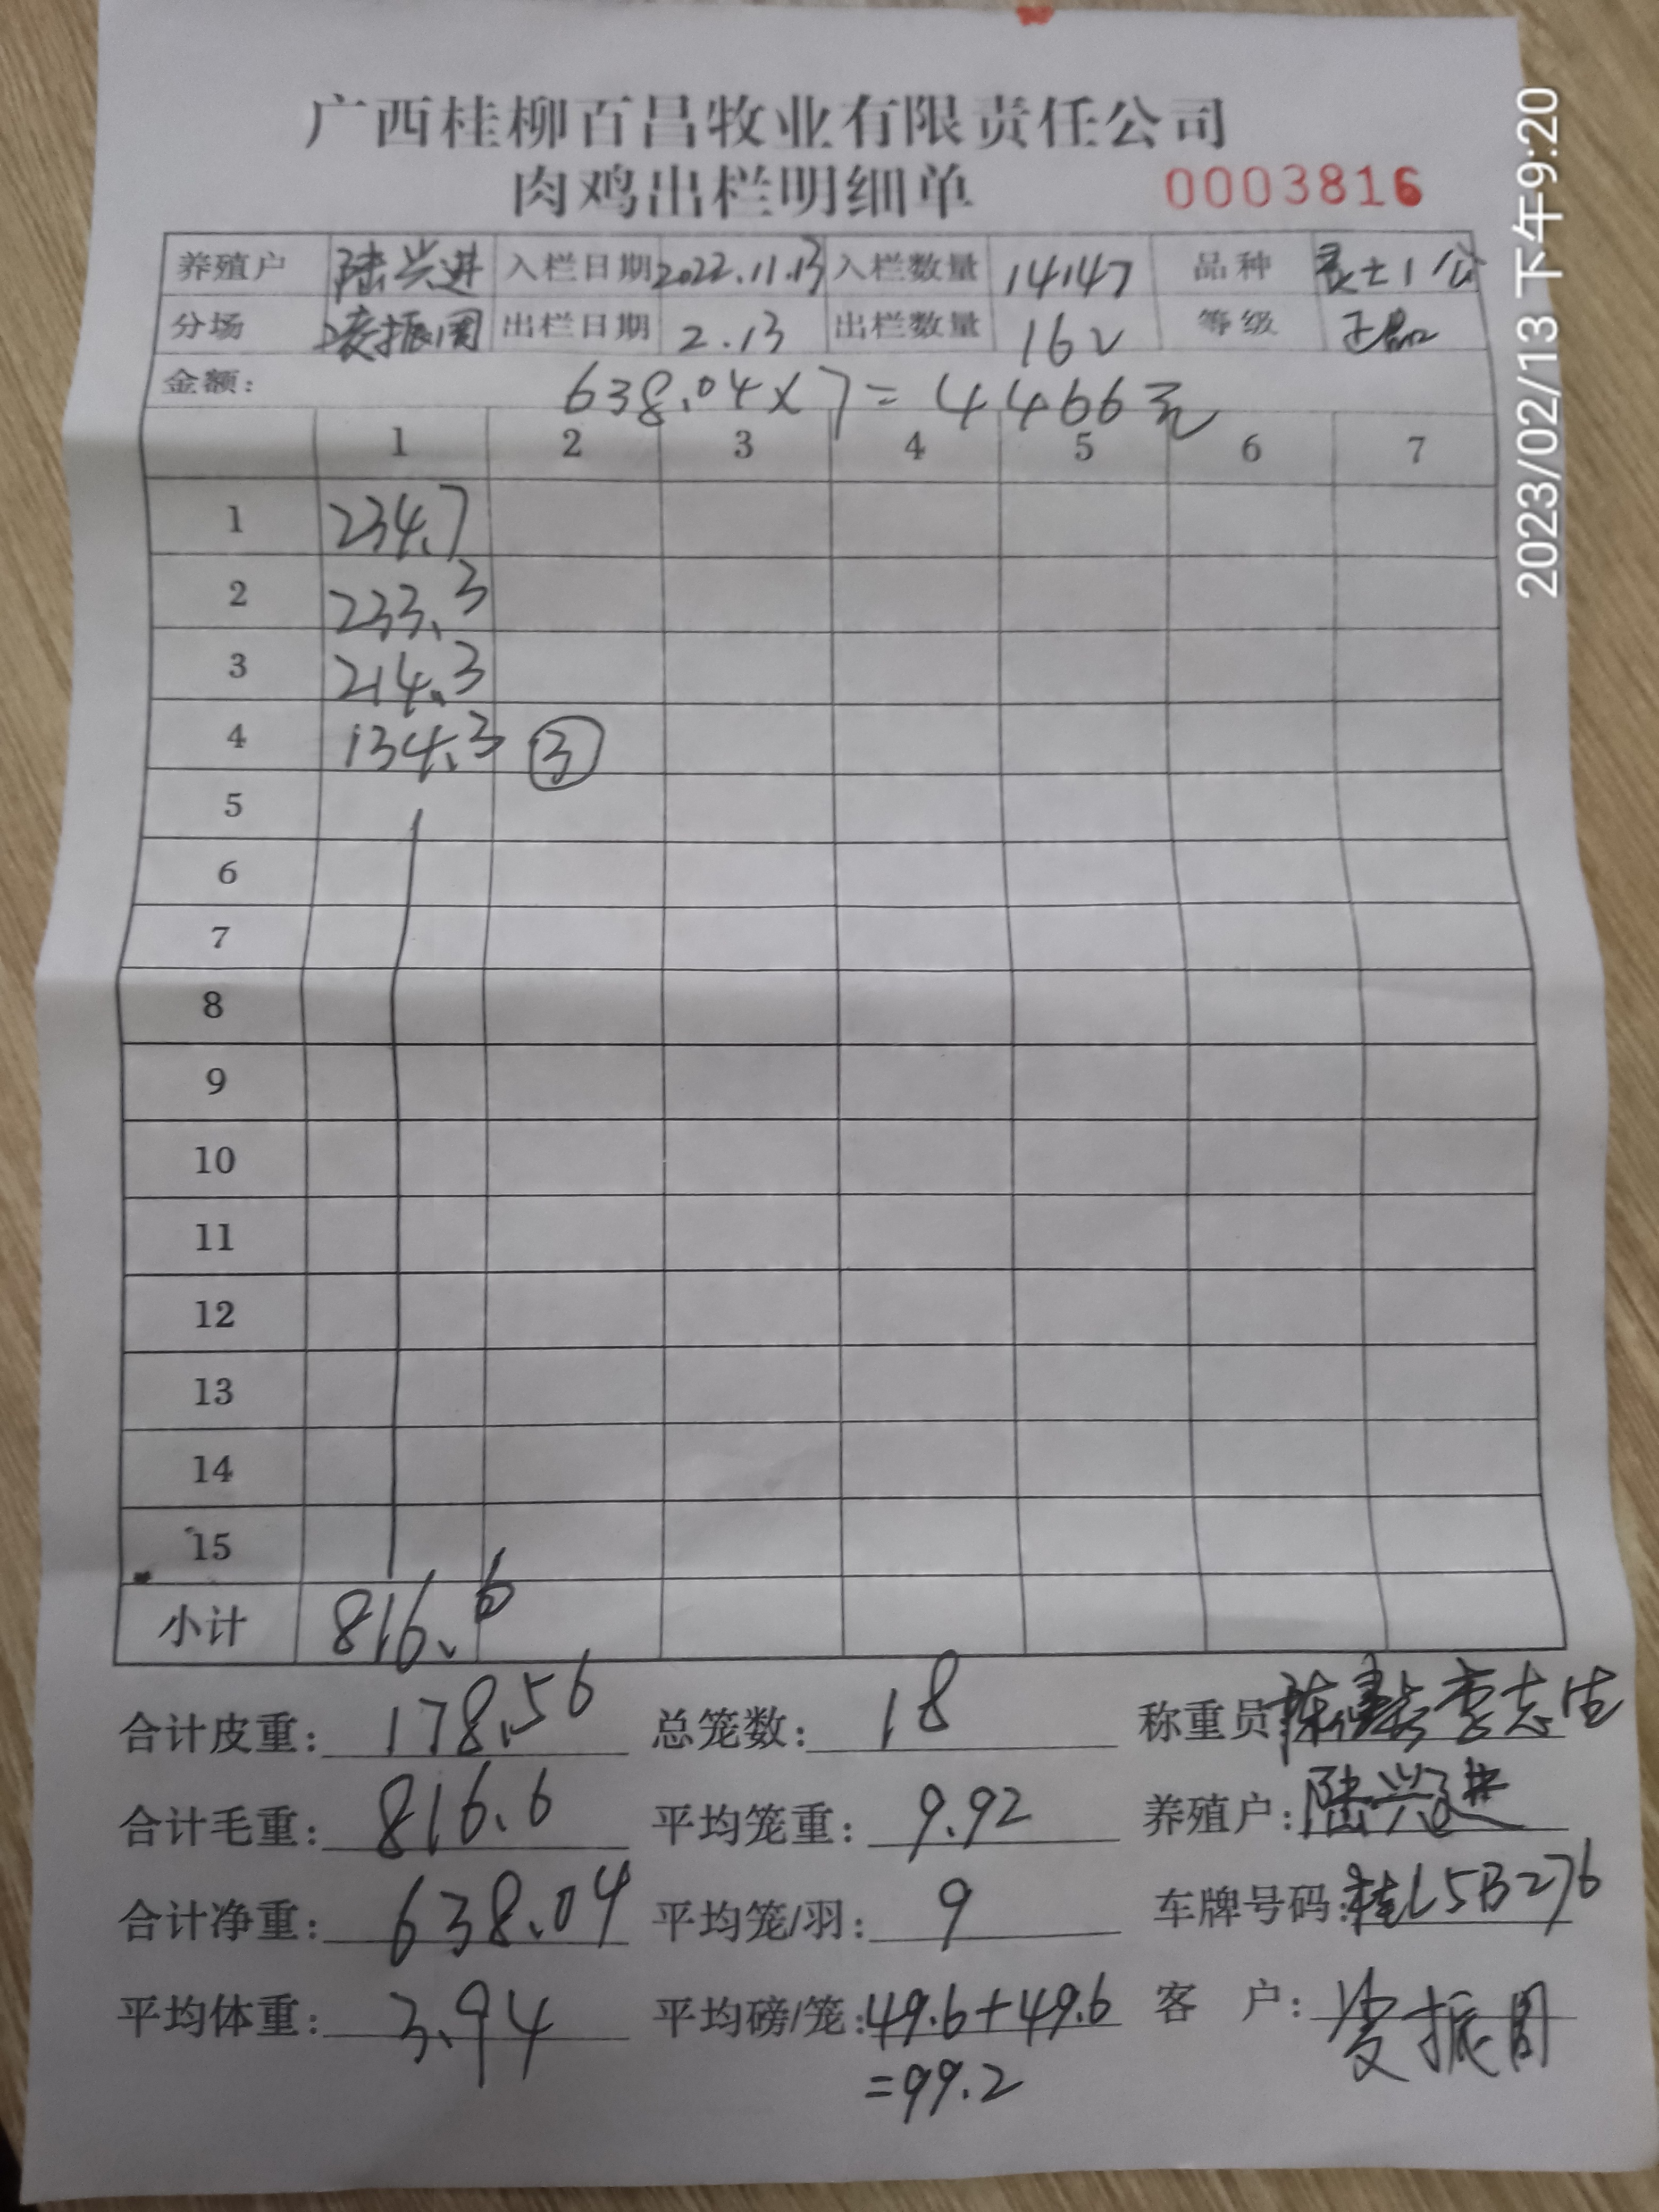 广西桂柳百昌牧业有限责任公司
肉鸡出栏明细单 0003816
养殖户 陆兴进 入栏日期 2022.11.13 入栏数量 14147 品种 良土1/公
分场 凌振周 出栏日期 2.13 出栏数量 162 等级 正品
金额: 638.04×7=4466元
1 2 3 4 5 6 7
1 234.7
2 233.3
3 214.3
4 134.3 ③
5
6
7
8
9
10
11
12
13
14
15
小计 816.6
合计皮重: 178.56 总笼数: 18 称重员 李志生
合计毛重: 816.6 平均笼重: 9.92 养殖户: 陆兴进
合计净重: 638.04 平均笼/羽: 9 车牌号码: 桂L5B276
平均体重: 3.94 平均磅/笼: 49.6+49.6 客 户: 凌振周
=99.2
2023/02/13 下午9:20